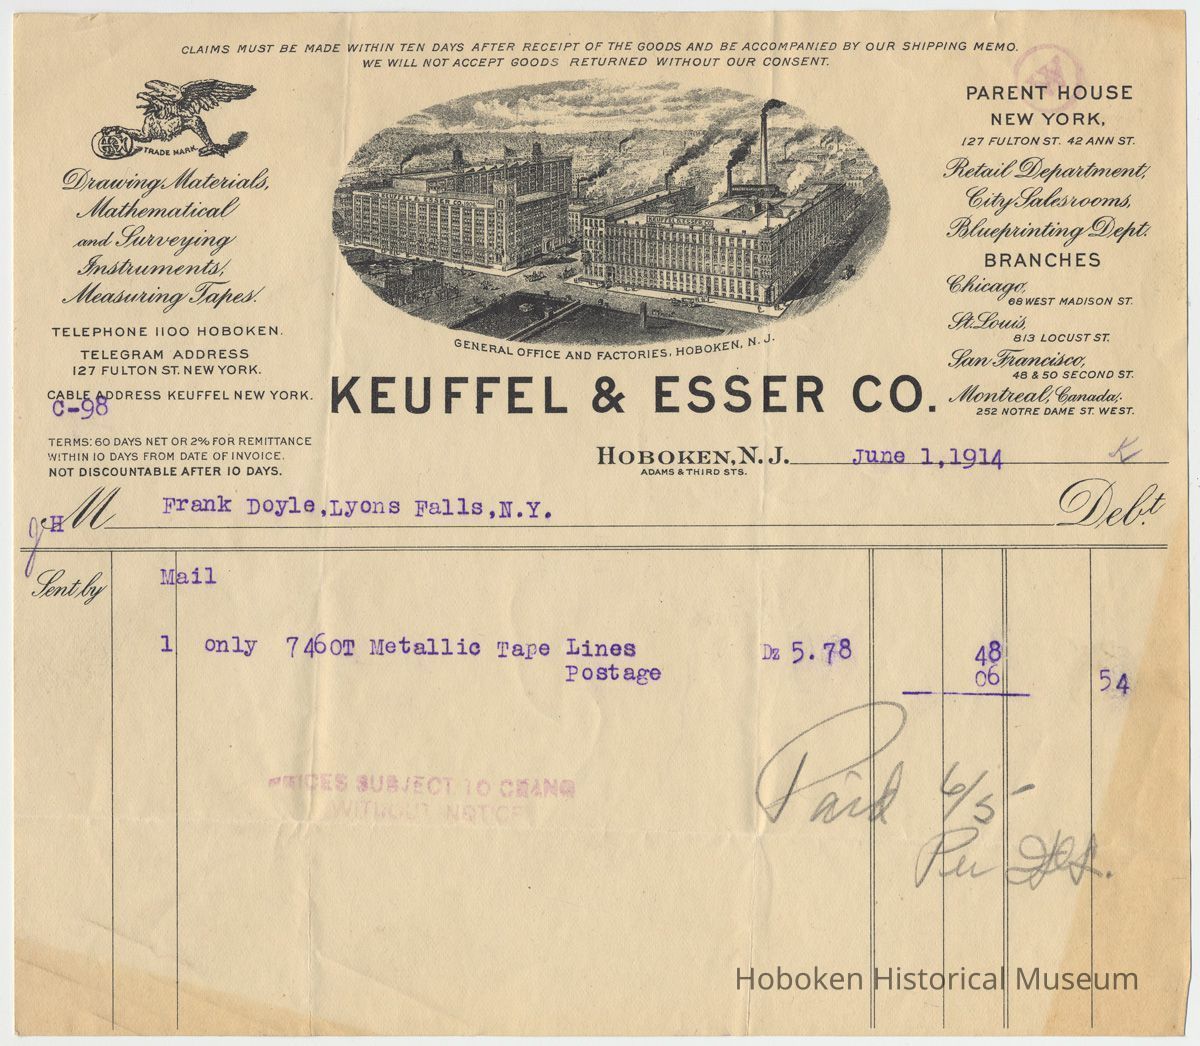 CLAIMS MUST BE MADE WITHIN TEN DAYS AFTER RECEIPT OF THE GOODS AND BE ACCOMPANIED BY OUR SHIPPING MEMO.
WE WILL NOT ACCEPT GOODS RETURNED WITHOUT OUR CONSENT.
TRADE MARK
Drawing Materials,
Mathematical
and Surveying
Instruments,
Measuring Tapes.
TELEPHONE 1100 HOBOKEN.
TELEGRAM ADDRESS
127 FULTON ST. NEW YORK.
CABLE ADDRESS KEUFFEL NEW YORK.
C-98
TERMS: 60 DAYS NET OR 2% FOR REMITTANCE
WITHIN 10 DAYS FROM DATE OF INVOICE.
NOT DISCOUNTABLE AFTER 10 DAYS.
KEUFFEL & ESSER CO.
KEUFFEL & ESSER
GENERAL OFFICE AND FACTORIES, HOBOKEN, N. J.
KEUFFEL & ESSER CO.
PARENT HOUSE
NEW YORK,
127 FULTON ST. 42 ANN ST.
Retail Department,
City Salesrooms,
Blueprinting Dept.
BRANCHES
Chicago,
68 WEST MADISON ST.
St. Louis,
813 LOCUST ST.
San Francisco,
48 & 50 SECOND ST.
Montreal, Canada,
252 NOTRE DAME ST. WEST.
HOBOKEN, N. J. June 1,1914 K
ADAMS & THIRD STS.
H M Frank Doyle,Lyons Falls,N.Y. Debt.
Sent by Mail
1 only 7460T Metallic Tape Lines Dz 5.78 48
Postage 06 54
PRICES SUBJECT TO CHANG
WITHOUT NOTICE
Paid 6/5
Per
Hoboken Historical Museum